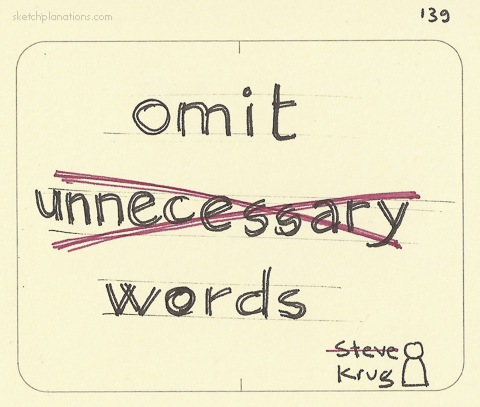 sketchplanations.com
139
omit
unnecessary
words
Steve
Krug